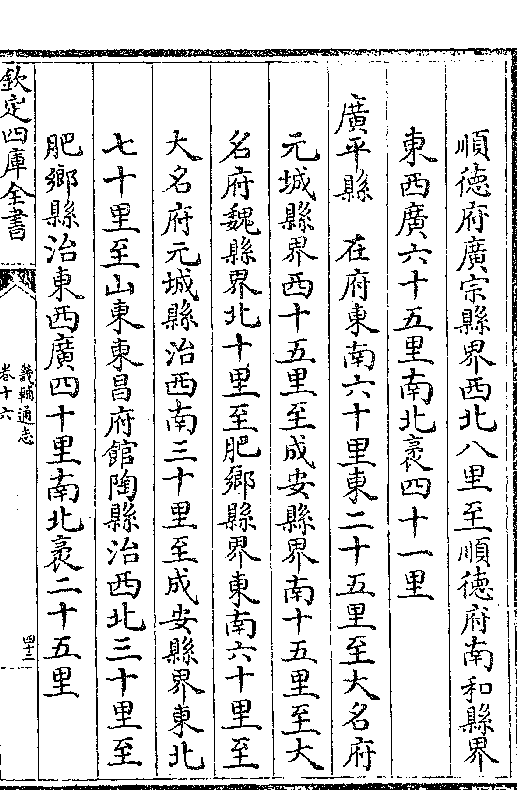 順德府廣宗縣界西北八里至順德府南和縣界
東西廣六十五里南北袤四十一里
廣平縣　在府東南六十里東二十五里至大名府
元城縣界西十五里至成安縣界南十五里至大
名府魏縣界北十里至肥鄉縣界東南六十里至
大名府元城縣治西南三十里至成安縣界東北
七十里至山東東昌府館陶縣治西北三十里至
肥鄉縣治東西廣四十里南北袤二十五里
欽定四庫全書
畿輔通志
卷十六
四十三